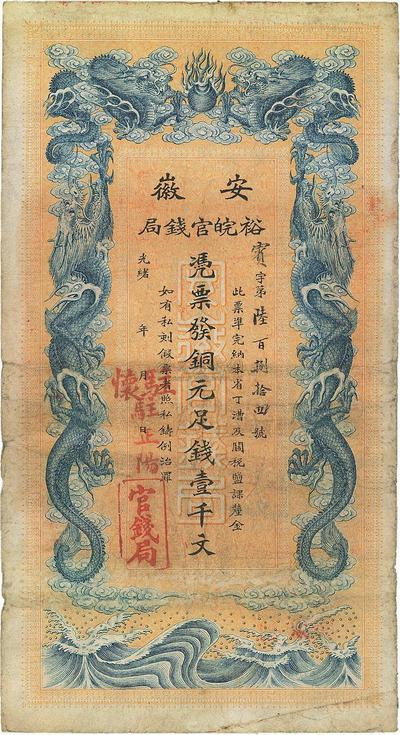 安徽
裕皖官錢局
寶字第陸百捌拾四號
此票準完納本省丁漕及關稅鹽課釐金
憑票發銅元足錢壹千文
如有私刻假票者照私鑄例治罪
光緒 年 月 日
駐正陽
懷
官錢局